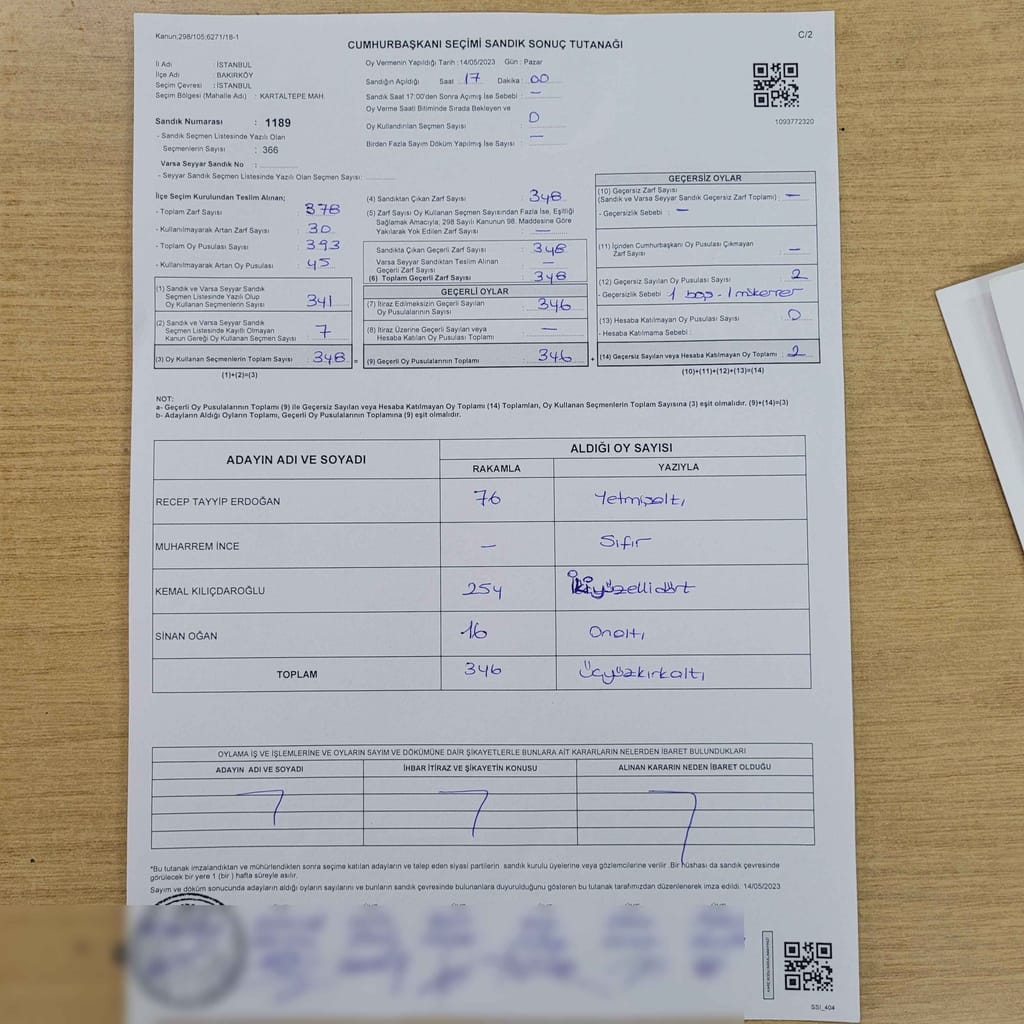 Kanun;298/105;6271/18-1
C/2
CUMHURBAŞKANI SEÇİMİ SANDIK SONUÇ TUTANAĞI
İl Adı : İSTANBUL
İlçe Adı : BAKIRKÖY
Seçim Çevresi : İSTANBUL
Seçim Bölgesi (Mahalle Adı) : KARTALTEPE MAH.
Oy Vermenin Yapıldığı Tarih : 14/05/2023 Gün : Pazar
Sandığın Açıldığı Saat 17 Dakika : 00
Sandık Saat 17:00'den Sonra Açımış İse Sebebi : —
Oy Verme Saati Bitiminde Sırada Bekleyen ve
Oy Kullandırılan Seçmen Sayısı : 0
Birden Fazla Sayım Döküm Yapılmış İse Sayısı : —
1093772320
Sandık Numarası : 1189
- Sandık Seçmen Listesinde Yazılı Olan
Seçmenlerin Sayısı : 366
Varsa Seyyar Sandık No :
- Seyyar Sandık Seçmen Listesinde Yazılı Olan Seçmen Sayısı:
İlçe Seçim Kurulundan Teslim Alınan;
- Toplam Zarf Sayısı : 378
- Kullanılmayarak Artan Zarf Sayısı : 30
- Toplam Oy Pusulası Sayısı : 393
- Kullanılmayarak Artan Oy Pusulası : 45
(1) Sandık ve Varsa Seyyar Sandık
Seçmen Listesinde Yazılı Olup
Oy Kullanan Seçmenlerin Sayısı 341
(2) Sandık ve Varsa Seyyar Sandık
Seçmen Listesinde Kayıtlı Olmayan
Kanun Gereği Oy Kullanan Seçmen Sayısı 7
(3) Oy Kullanan Seçmenlerin Toplam Sayısı 348 =
(1)+(2)=(3)
(4) Sandıktan Çıkan Zarf Sayısı : 348
(5) Zarf Sayısı Oy Kullanan Seçmen Sayısından Fazla İse, Eşitliği
Sağlamak Amacıyla, 298 Sayılı Kanunun 98. Maddesine Göre
Yakılarak Yok Edilen Zarf Sayısı : —
Sandıkta Çıkan Geçerli Zarf Sayısı : 348
Varsa Seyyar Sandıktan Teslim Alınan
Geçerli Zarf Sayısı : —
(6) Toplam Geçerli Zarf Sayısı : 348
GEÇERLİ OYLAR
(7) İtiraz Edilmeksizin Geçerli Sayılan
Oy Pusulasının Sayısı : 346
(8) İtiraz Üzerine Geçerli Sayılan veya
Hesaba Katılan Oy Pusulası Toplamı : —
(9) Geçerli Oy Pusulalarının Toplamı : 346 +
GEÇERSİZ OYLAR
(10) Geçersiz Zarf Sayısı
(Sandık ve Varsa Seyyar Geçersiz Zarf Toplamı) : —
- Geçersizlik Sebebi : —
(11) İçinden Cumhurbaşkanı Oy Pusulası Çıkmayan
Zarf Sayısı : —
(12) Geçersiz Sayılan Oy Pusulası Sayısı : 2
- Geçersizlik Sebebi : 1 boş - 1 mükerrer
(13) Hesaba Katılmayan Oy Pusulası Sayısı : 0
- Hesaba Katılmama Sebebi :
(14) Geçersiz Sayılan veya Hesaba Katılmayan Oy Toplamı : 2
(10)+(11)+(12)+(13)=(14)
NOT:
a- Geçerli Oy Pusulalarının Toplamı (9) ile Geçersiz Sayılan veya Hesaba Katılmayan Oy Toplamı (14) Toplamları, Oy Kullanan Seçmenlerin Toplam Sayısına (3) eşit olmalıdır. (9)+(14)=(3)
b- Adayların Aldığı Oyların Toplamı, Geçerli Oy Pusulalarının Toplamına (9) eşit olmalıdır.
ADAYIN ADI VE SOYADI ALDIĞI OY SAYISI
RAKAMLA YAZIYLA
RECEP TAYYİP ERDOĞAN 76 Yetmişaltı
MUHARREM İNCE — Sıfır
KEMAL KILIÇDAROĞLU 254 İkiyüzellidört
SİNAN OĞAN 16 Onaltı
TOPLAM 346 Üçyüzkırkaltı
OYLAMA İŞ VE İŞLEMLERİNE VE OYLARIN SAYIM VE DÖKÜMÜNE DAİR ŞİKAYETLERLE BUNLARA AİT KARARLARIN NELERDEN İBARET BULUNDUKLARI
ADAYIN ADI VE SOYADI İHBAR İTİRAZ VE ŞİKAYETİN KONUSU ALINAN KARARIN NEDEN İBARET OLDUĞU
*Bu tutanak imzalandıktan ve mühürlendikten sonra seçime katılan adayların ve talep eden siyasi partilerin sandık kurulu üyelerine veya gözlemcilerine verilir. Bir nüshası da sandık çevresinde
görülecek bir yere 1 (bir) hafta süreyle asılır.
Sayım ve döküm sonucunda adayların aldığı oyların sayılarını ve bunların sandık çevresinde bulunanlara duyurulduğunu gösteren bu tutanak tarafımızdan düzenlenerek imza edildi. 14/05/2023
SSI_404